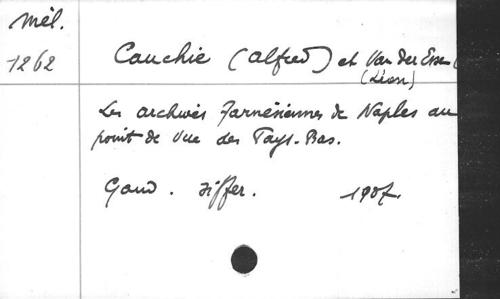 Mél.
1262
Cauchie (Alfred) et Van der Essen
(Léon)
Les archives Farnésiennes de Naples au
point de vue des Pays-Bas.
Gand. Siffer. 1907.